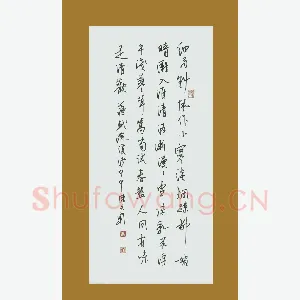 细雨斜风作小寒淡烟疏柳媚
晴滩入淮清洛渐漫漫雪沫乳花浮
午盏蓼茸蒿笋试春盘人间有味
是清欢 苏轼浣溪沙
Shufawang.CN